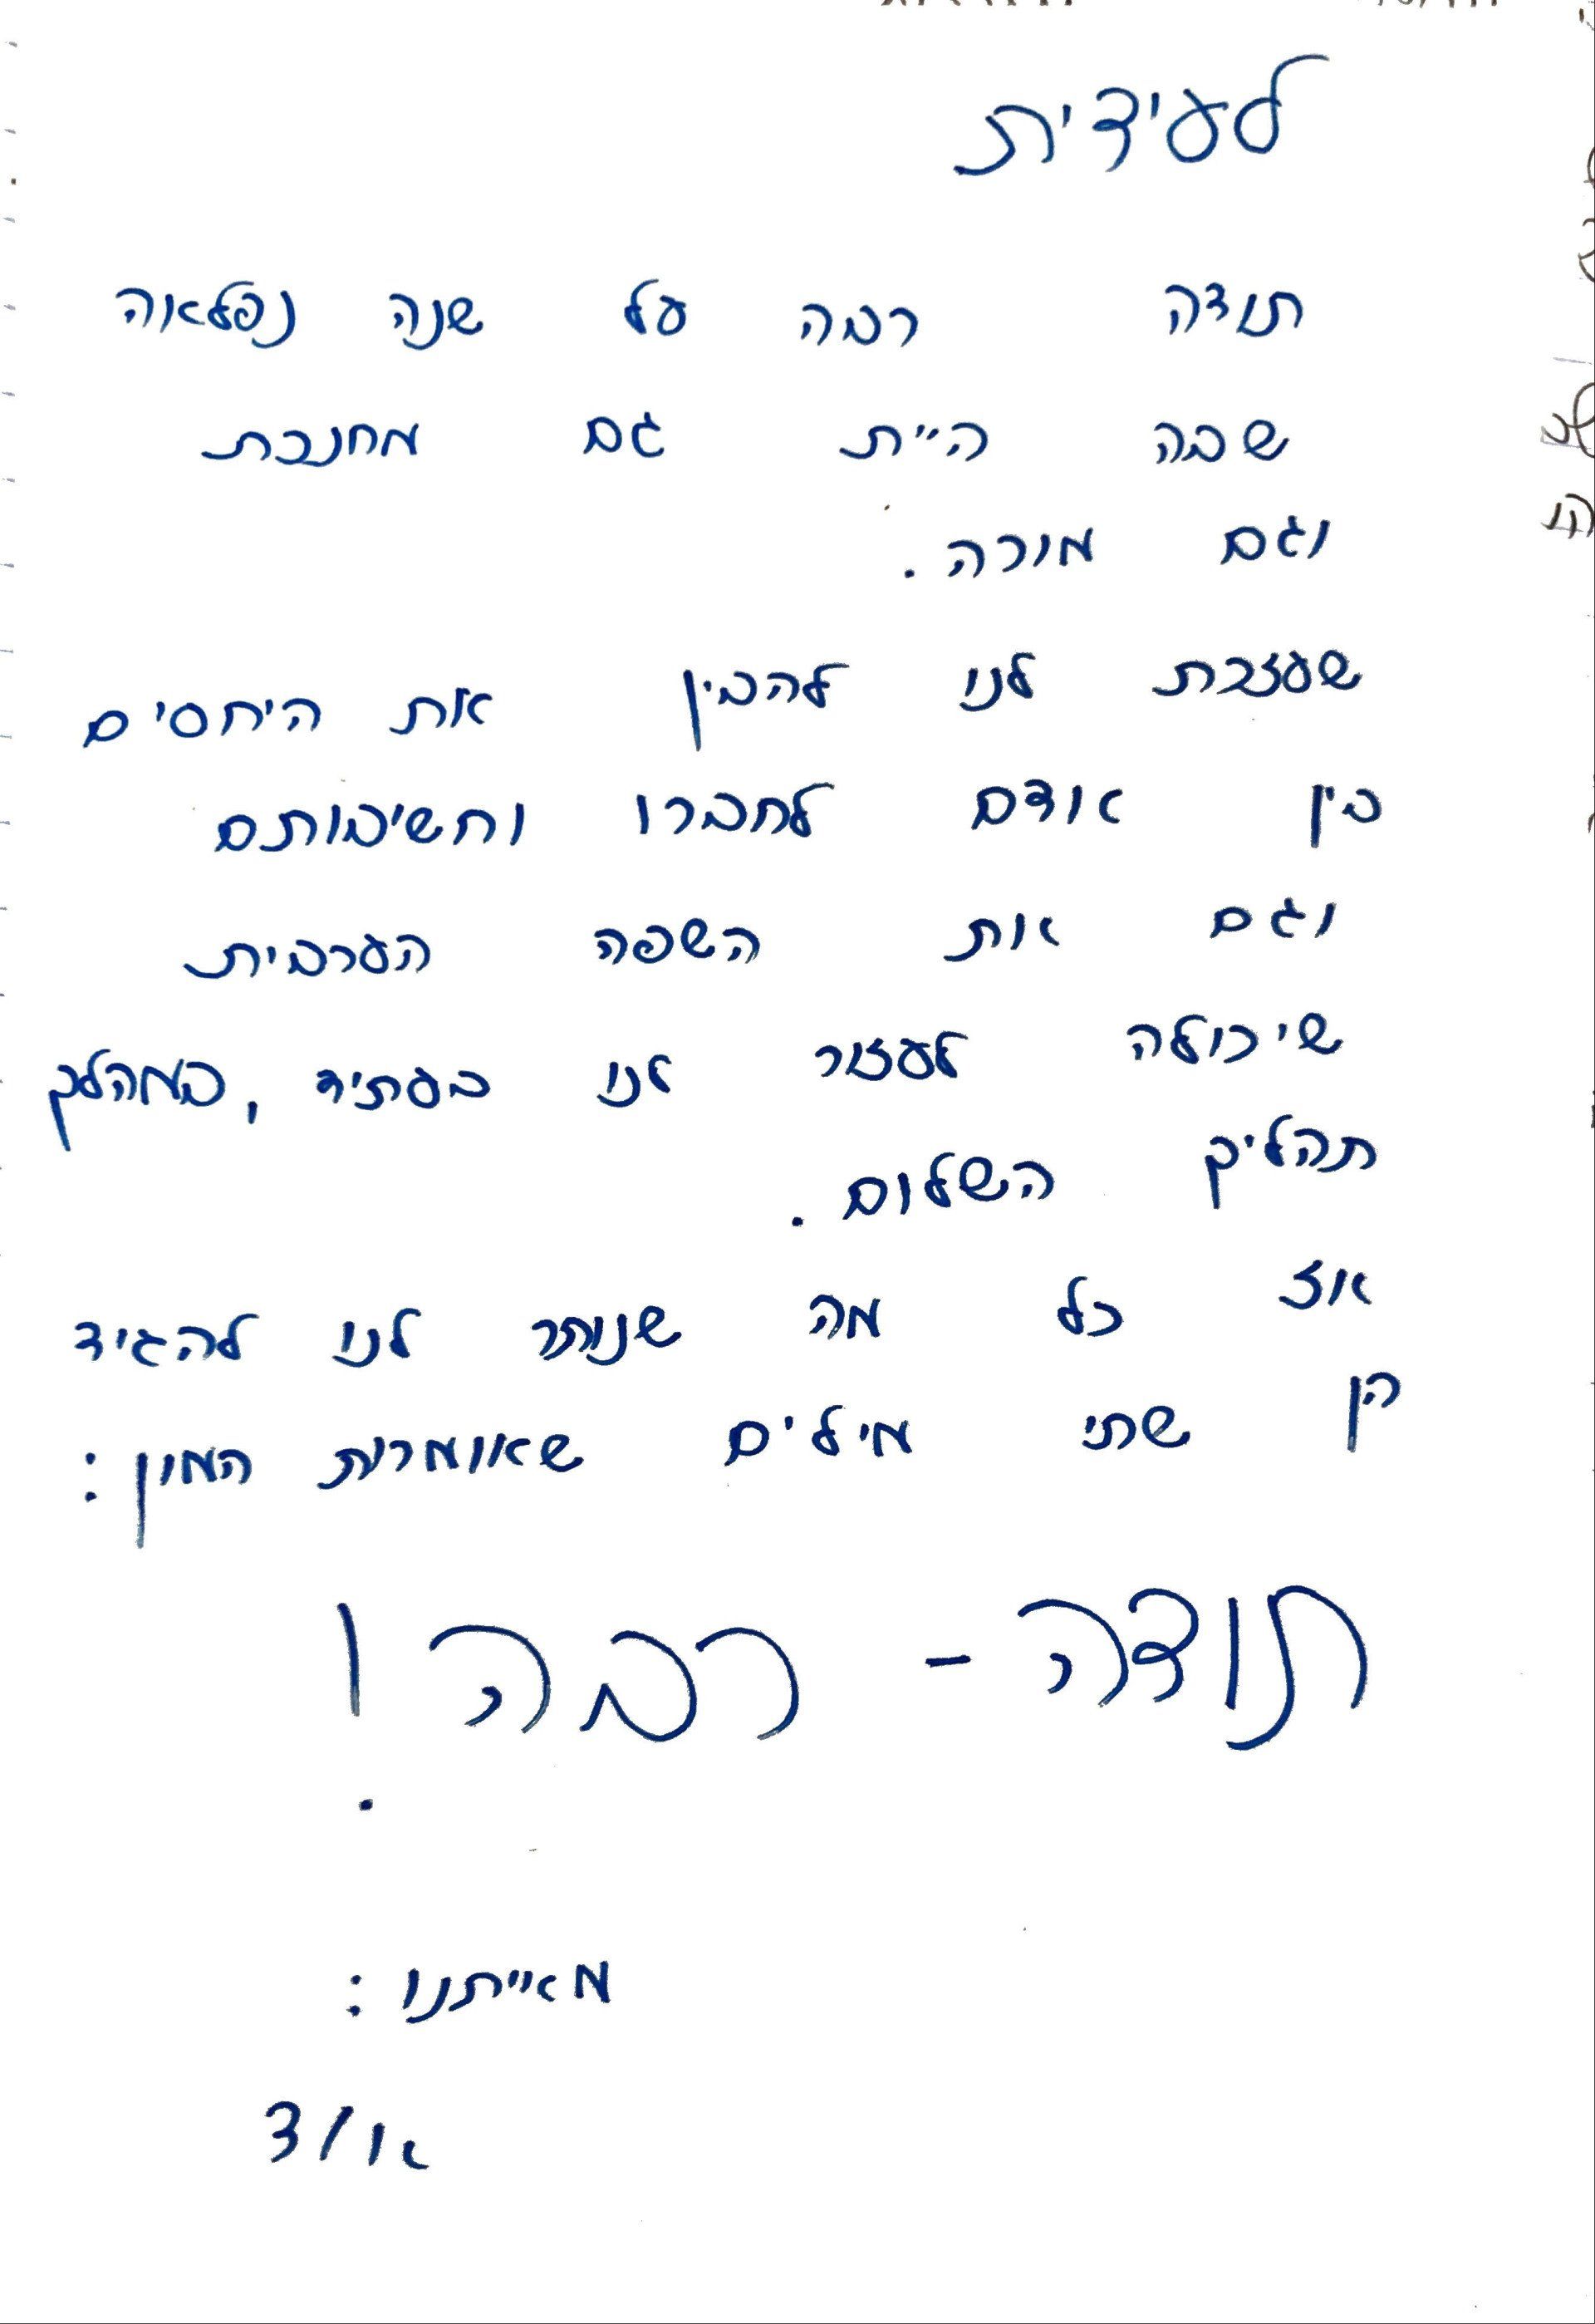 לעידית
תודה רבה על שנה נפלאה
שבה היית גם מחנכת
וגם מורה.
שעזבת לנו להבין את היחסים
בין אדם לחברו וחשיבותם
וגם את השפה הערבית
שיכולה לעזור לנו בעתיד, במהלך
תהליך השלום.
אז כל מה שנותר לנו להגיד
הן שתי מילים שאומרות המון:
תודה - רבה!
מאייתנו:
א/3